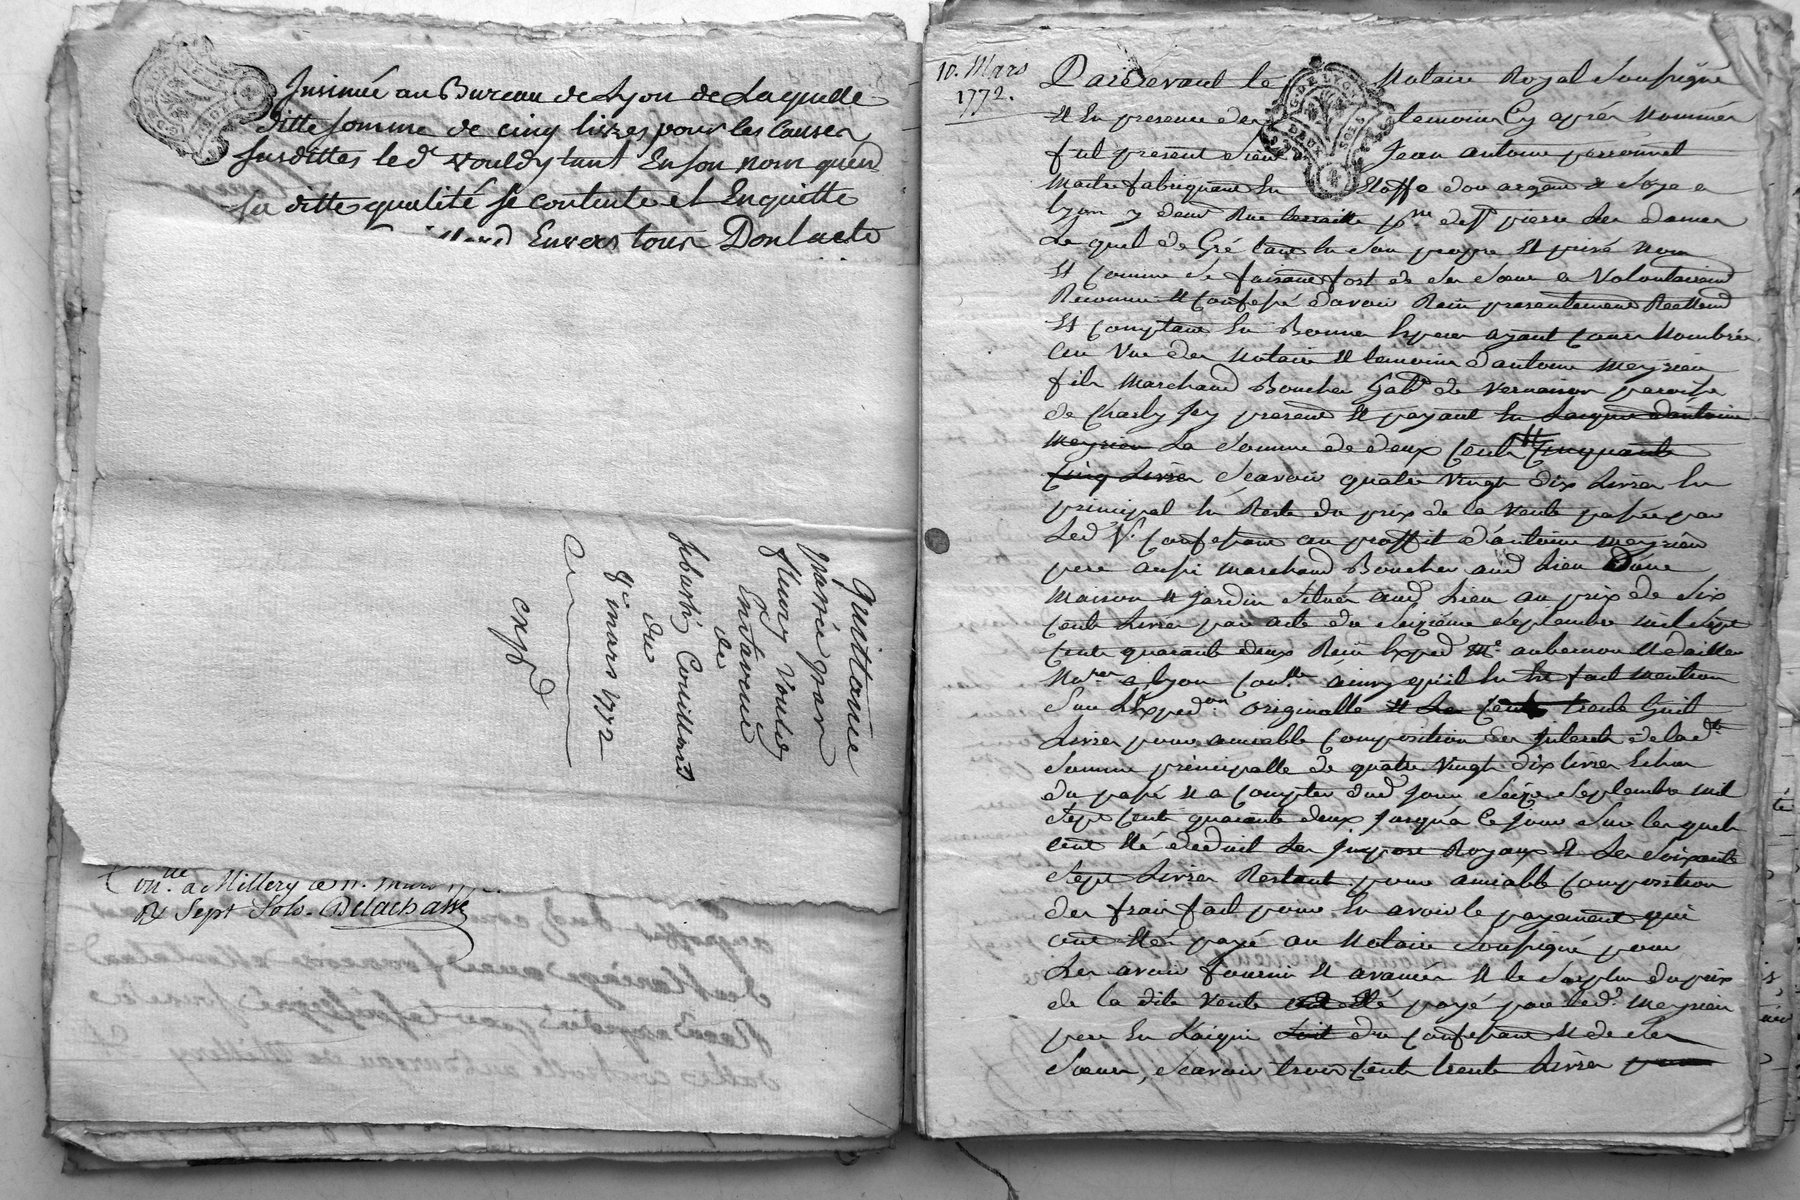 Insinué au Bureau de Lyon de Laquelle
ditte somme de cinq livres pour les Causes
susdittes led vouldy tant En son nom quen
sa ditte qualité se contente et Enquitte
Envers tous Dont acte
Quittance
passée par
fleury Vouldy
Entaveue
de
Couillard
du
mars 1772
expd
Conlle a Millery ce 11. mars
Sept Sols. Delachasse
10. Mars
1772.
Pardevant le Notaire Royal Soussigné
Et En presence des temoins Cy aprés Nommés
fut présent sieur Jean antoine perronnet
Maitre fabriquant En Etoffe dor argent et Soye a
Lyon y demt Rue terraille psse de St pierre Les dames
Lequel de Gré tant En Son propre Et privé Nom
Et Comme Se faisant fort de Ses Sœurs a Volontairemt
Reconnu Et Confessé davoir Recu presentement Reellemt
Et Comptant En Bonnes Especes ayant Cours Nombrées
au Vue des Notaire Et temoins d'antoine Meyrieu
fils Marchand Boucher habt de Vernaison paroisse
de Charly Icy present Et payant En Lacquit d'antoine
Meyrieu La Somme de deux Cents Cinquante
Cinq Livres Scavoir quatre Vingt dix Livres En
principal En Reste du prix de la Vente passée par
Led Sr. Confessant au proffit d'antoine Meyrieu
pere aussi Marchand Boucher aud Lieu Dune
Maison Et Jardin Située aud Lieu au prix de Six
Cents Livres par acte du Seizieme Septembre mil Sept
Cents quarante deux Recu Exped Me. aubernon Et dailler
Nores a Lyon ainsy qu'il En Est fait Mention
Sur L'Expedon originalle Et Les Cents trente huit
Livres pour amiable Composition des Interets de lade
Somme principalle de quatre Vingt dix Livres Echus
du passé Et a Compter dud Jour Seize Septembre mil
Sept Cents quarante deux Jusqu'a Ce Jour Sur lesquels
ont Eté deduit Les Impots Royaux Et Les Soixante
Sept Livres Restant pour amiable Composition
des frais fait pour En avoir le payement qui
ont Etés payé au Notaire Soussigné pour
Les avoir fournis Et avancés Et le Surplus du prix
de la dite Vente Eté payé par led. Meyrieu
pere En Lacquit du Confessant Et de Ses
Sœurs, Scavoir trois Cents trente Livres